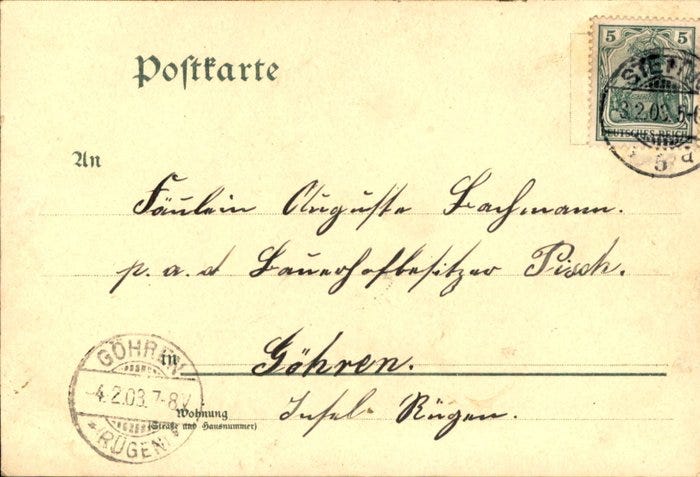 Postkarte
5 5
DEUTSCHES REICH
STETTIN
3.2.03.5-6
5 d
An
Fäulein Auguste Bachmann.
p. a. d Bauerhofbesitzer Pisch.
in Göhren.
Wohnung Insel Rügen.
(Straße und Hausnummer)
GÖHREN
4.2.03.7-8V
* RÜGEN *